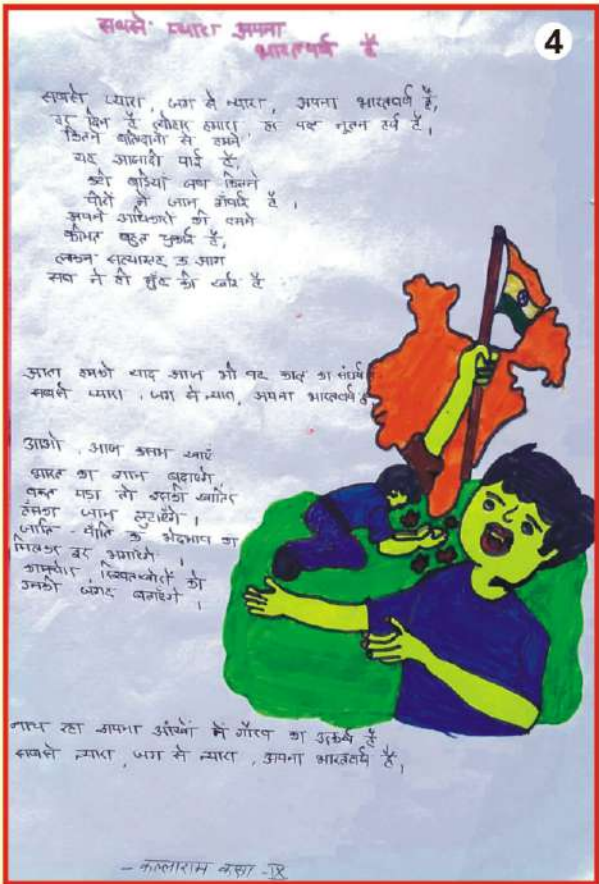 सबसे प्यारा अपना
भारतवर्ष है
4
सबसे प्यारा, जग से न्यारा, अपना भारतवर्ष है,
हर दिन है त्योहार हमारा हर पल नूतन हर्ष है,
कितने बलिदानों से हमने
यह आजादी पाई है,
कटी बेड़ियां जब कितने
वीरों ने जान गंवाई है।
अपने अधिकारों की हमने
कीमत बहुत चुकाई है,
लेकिन सत्याग्रह के आगे
सब ने ही मुँह की खाई है
आता हमको याद आज भी वह काल का संघर्ष
सबसे प्यारा, जग से न्यारा, अपना भारतवर्ष है
आओ, आज कसम खाएँ
भारत का मान बढ़ाएंगे,
वक्त पड़ा तो इसकी खातिर
हँसकर जान लुटाएँगे।
जाति-पाँति के भेदभाव को
मिलकर दूर भगाएंगे,
कामचोर, रिश्वतखोरों को
उनकी जगह बताएंगे।
नाच रहा अपनी आँखों में गौरव का उत्कर्ष है
सबसे न्यारा, जग से न्यारा, अपना भारतवर्ष है,
- कल्लाराम कक्षा -IX